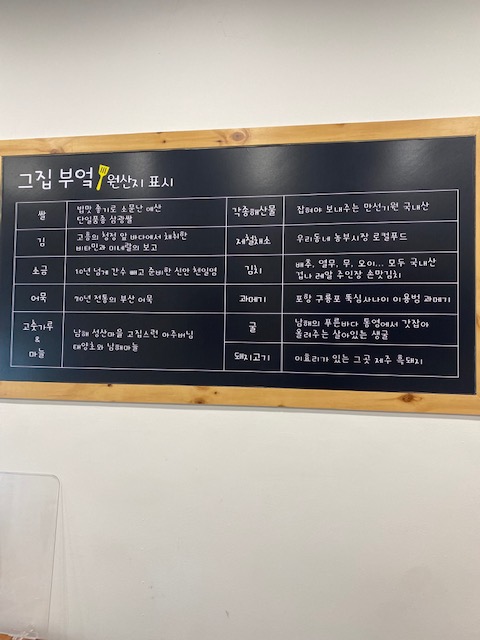 그집 부엌 원산지 표시
쌀
밥맛 좋기로 소문난 예산
단일품종 삼광쌀
김
고흥의 청정 앞 바다에서 채취한
비타민과 미네랄의 보고
소금
10년 넘게 간수 빼고 준비한 신안 천일염
어묵
70년 전통의 부산 어묵
고춧가루
&
마늘
남해 성산마을 고집스런 아주버님
태양초와 남해마늘
각종해산물
잡혀야 보내주는 만선기원 국내산
제철채소
우리동네 농부시장 로컬푸드
김치
배추, 열무, 무, 오이... 모두 국내산
겁나 레알 주인장 손맛김치
과메기
포항 구룡포 뚝심사나이 이용범 과메기
굴
남해의 푸른바다 통영에서 갓잡아
올려주는 살아있는 생굴
돼지고기
이효리가 있는 그곳 제주 흑돼지